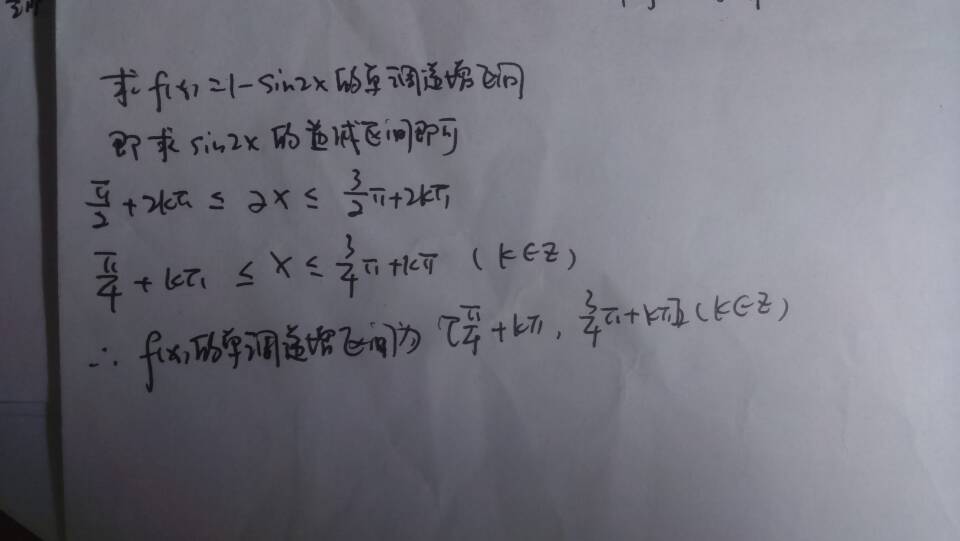 求 f(x)=1-sin2x的单调递增区间
即求 sin2x 的递减区间即可
π/2+2kπ ≤ 2x ≤ 3/2π+2kπ
π/4+kπ ≤ x ≤ 3/4π+kπ (k∈Z)
∴ f(x)的单调递增区间为 [π/4+kπ, 3/4π+kπ](k∈Z)